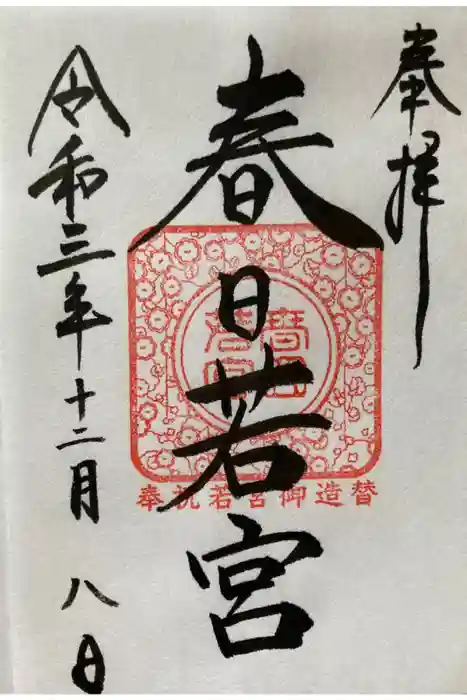 奉拝
春日若宮
奉祝若宮御造替
令和三年十二月八日